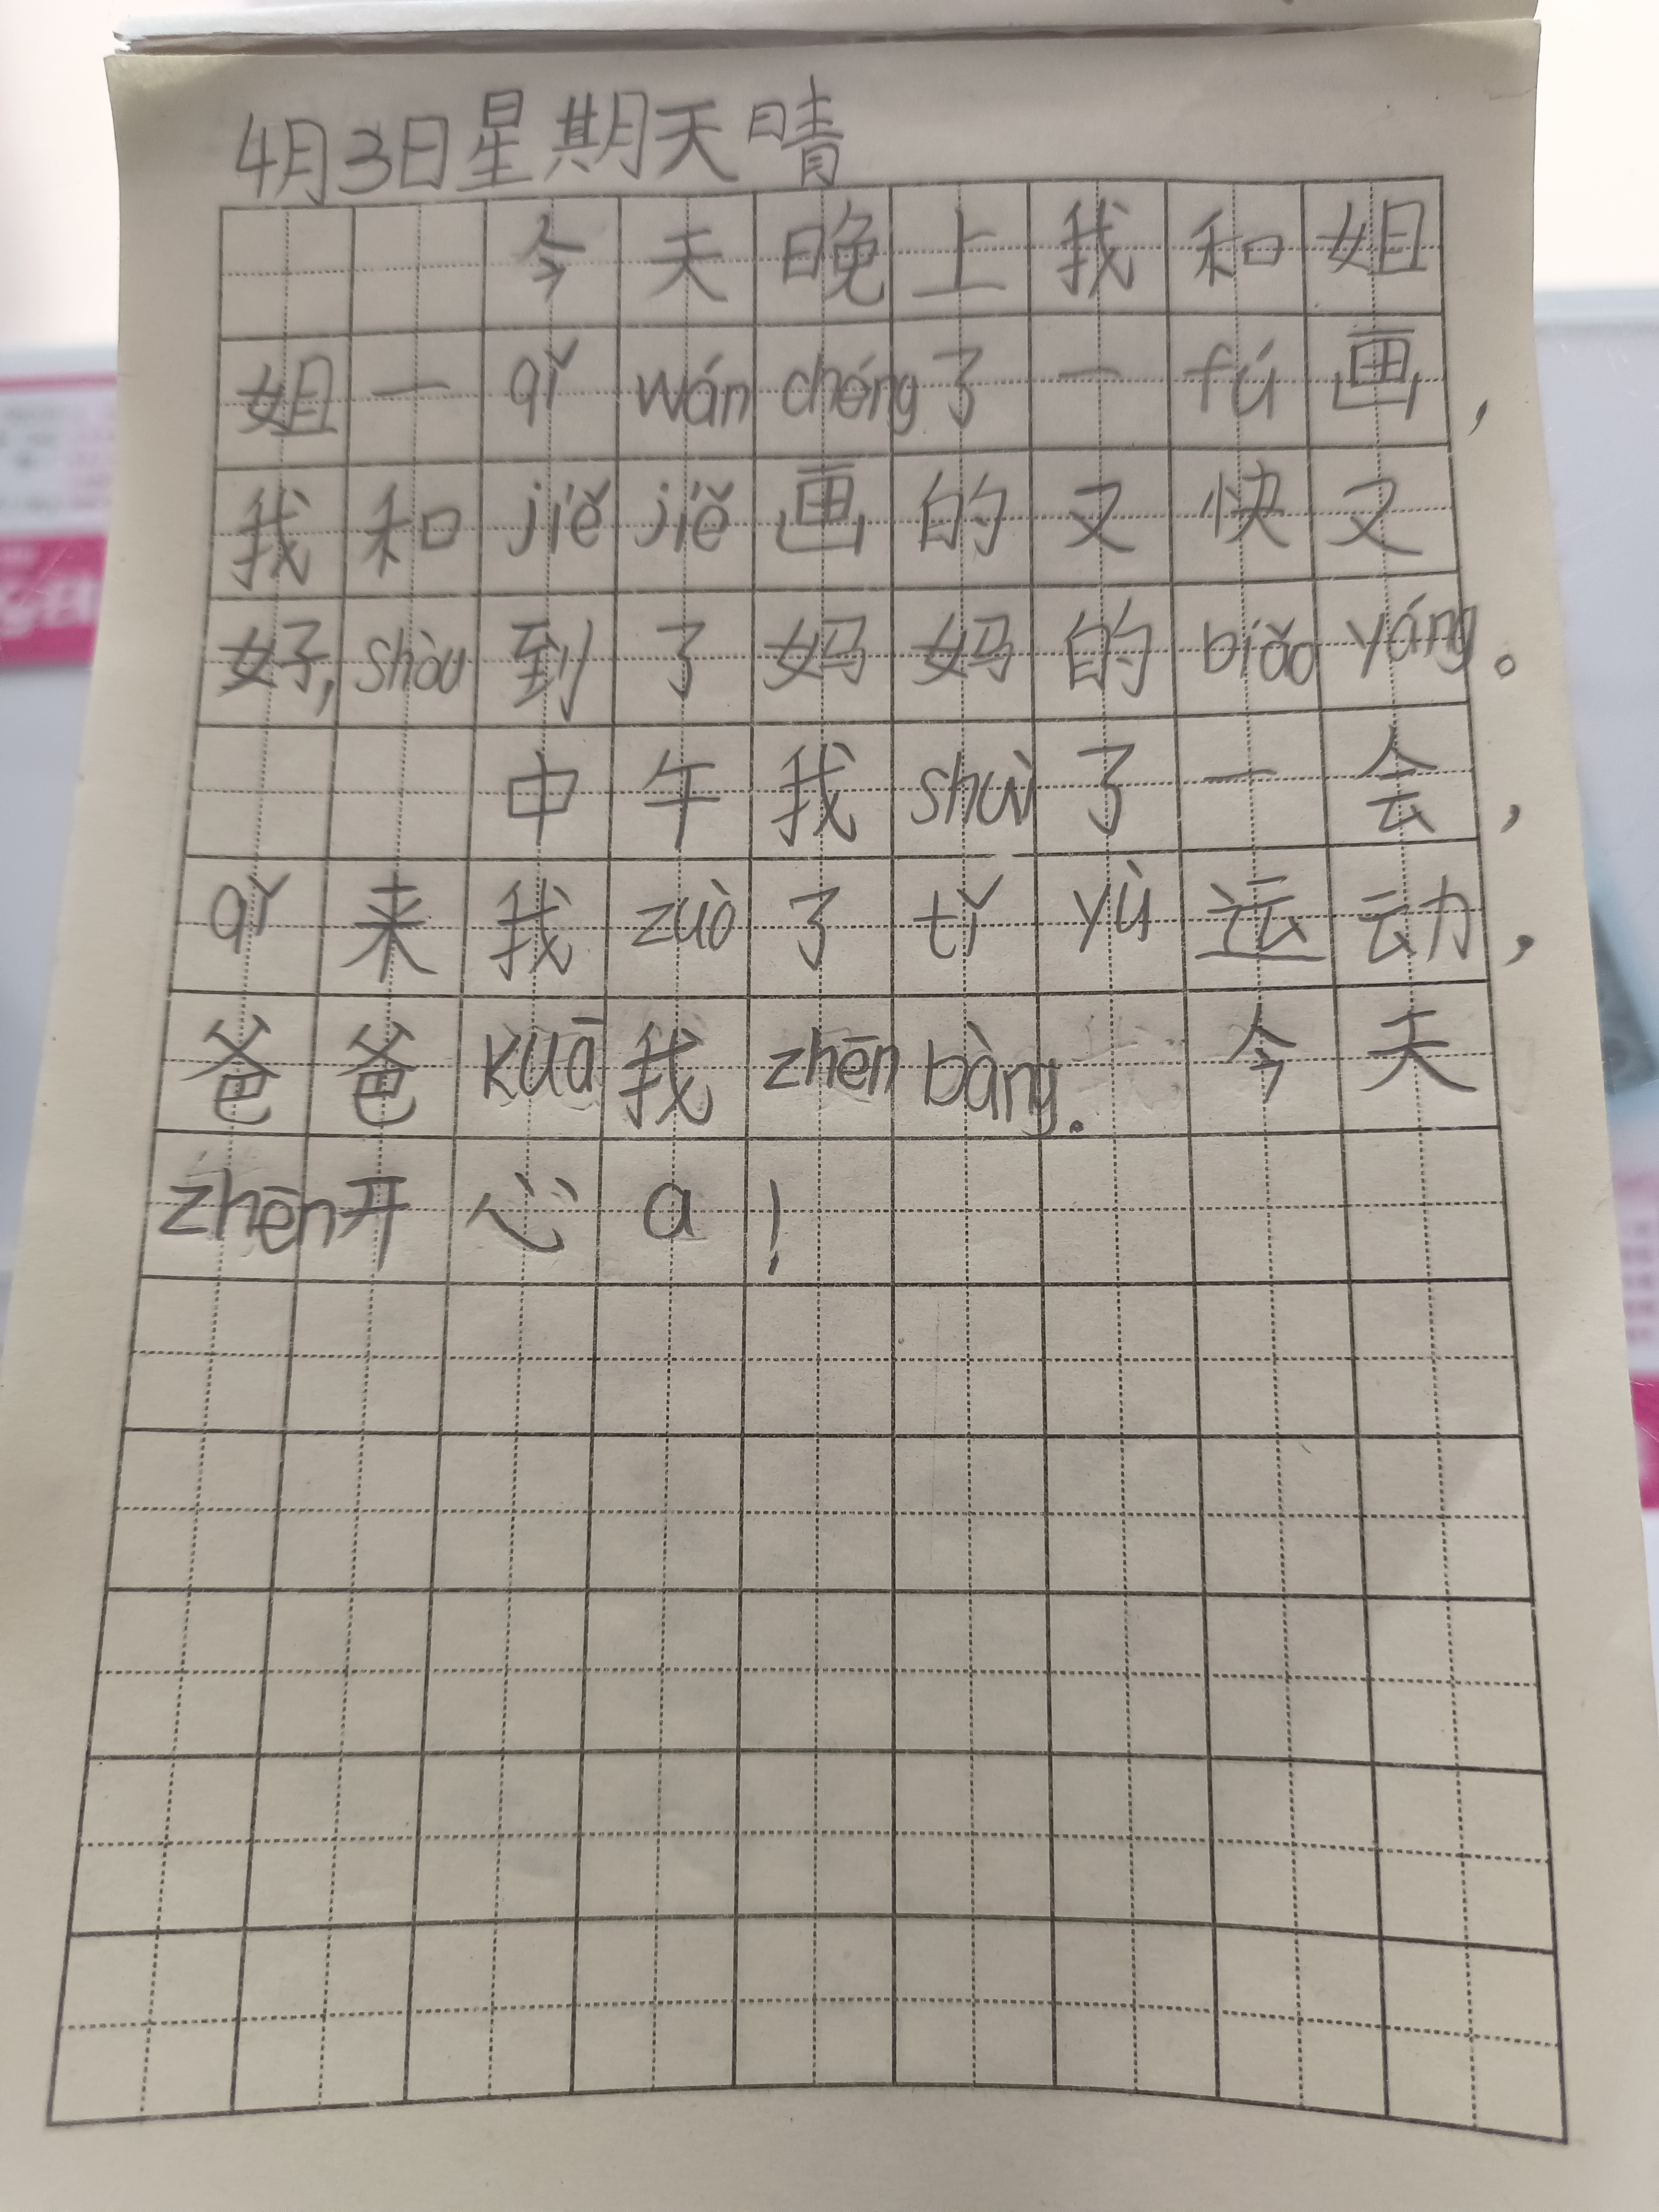 4月3日星期天晴
今天晚上我和姐
姐一qǐ wán chéng了一fú画，
我和jiě jiě画的又快又
好，shòu到了妈妈的biǎo yáng。
中午我shuì了一会，
qǐ来我zuò了tǐ yù运动，
爸爸kuā我zhēn bàng。今天
zhēn开心a！